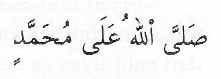 صَلىَّ اللهُ عَلَى مُحَمَّدٍ